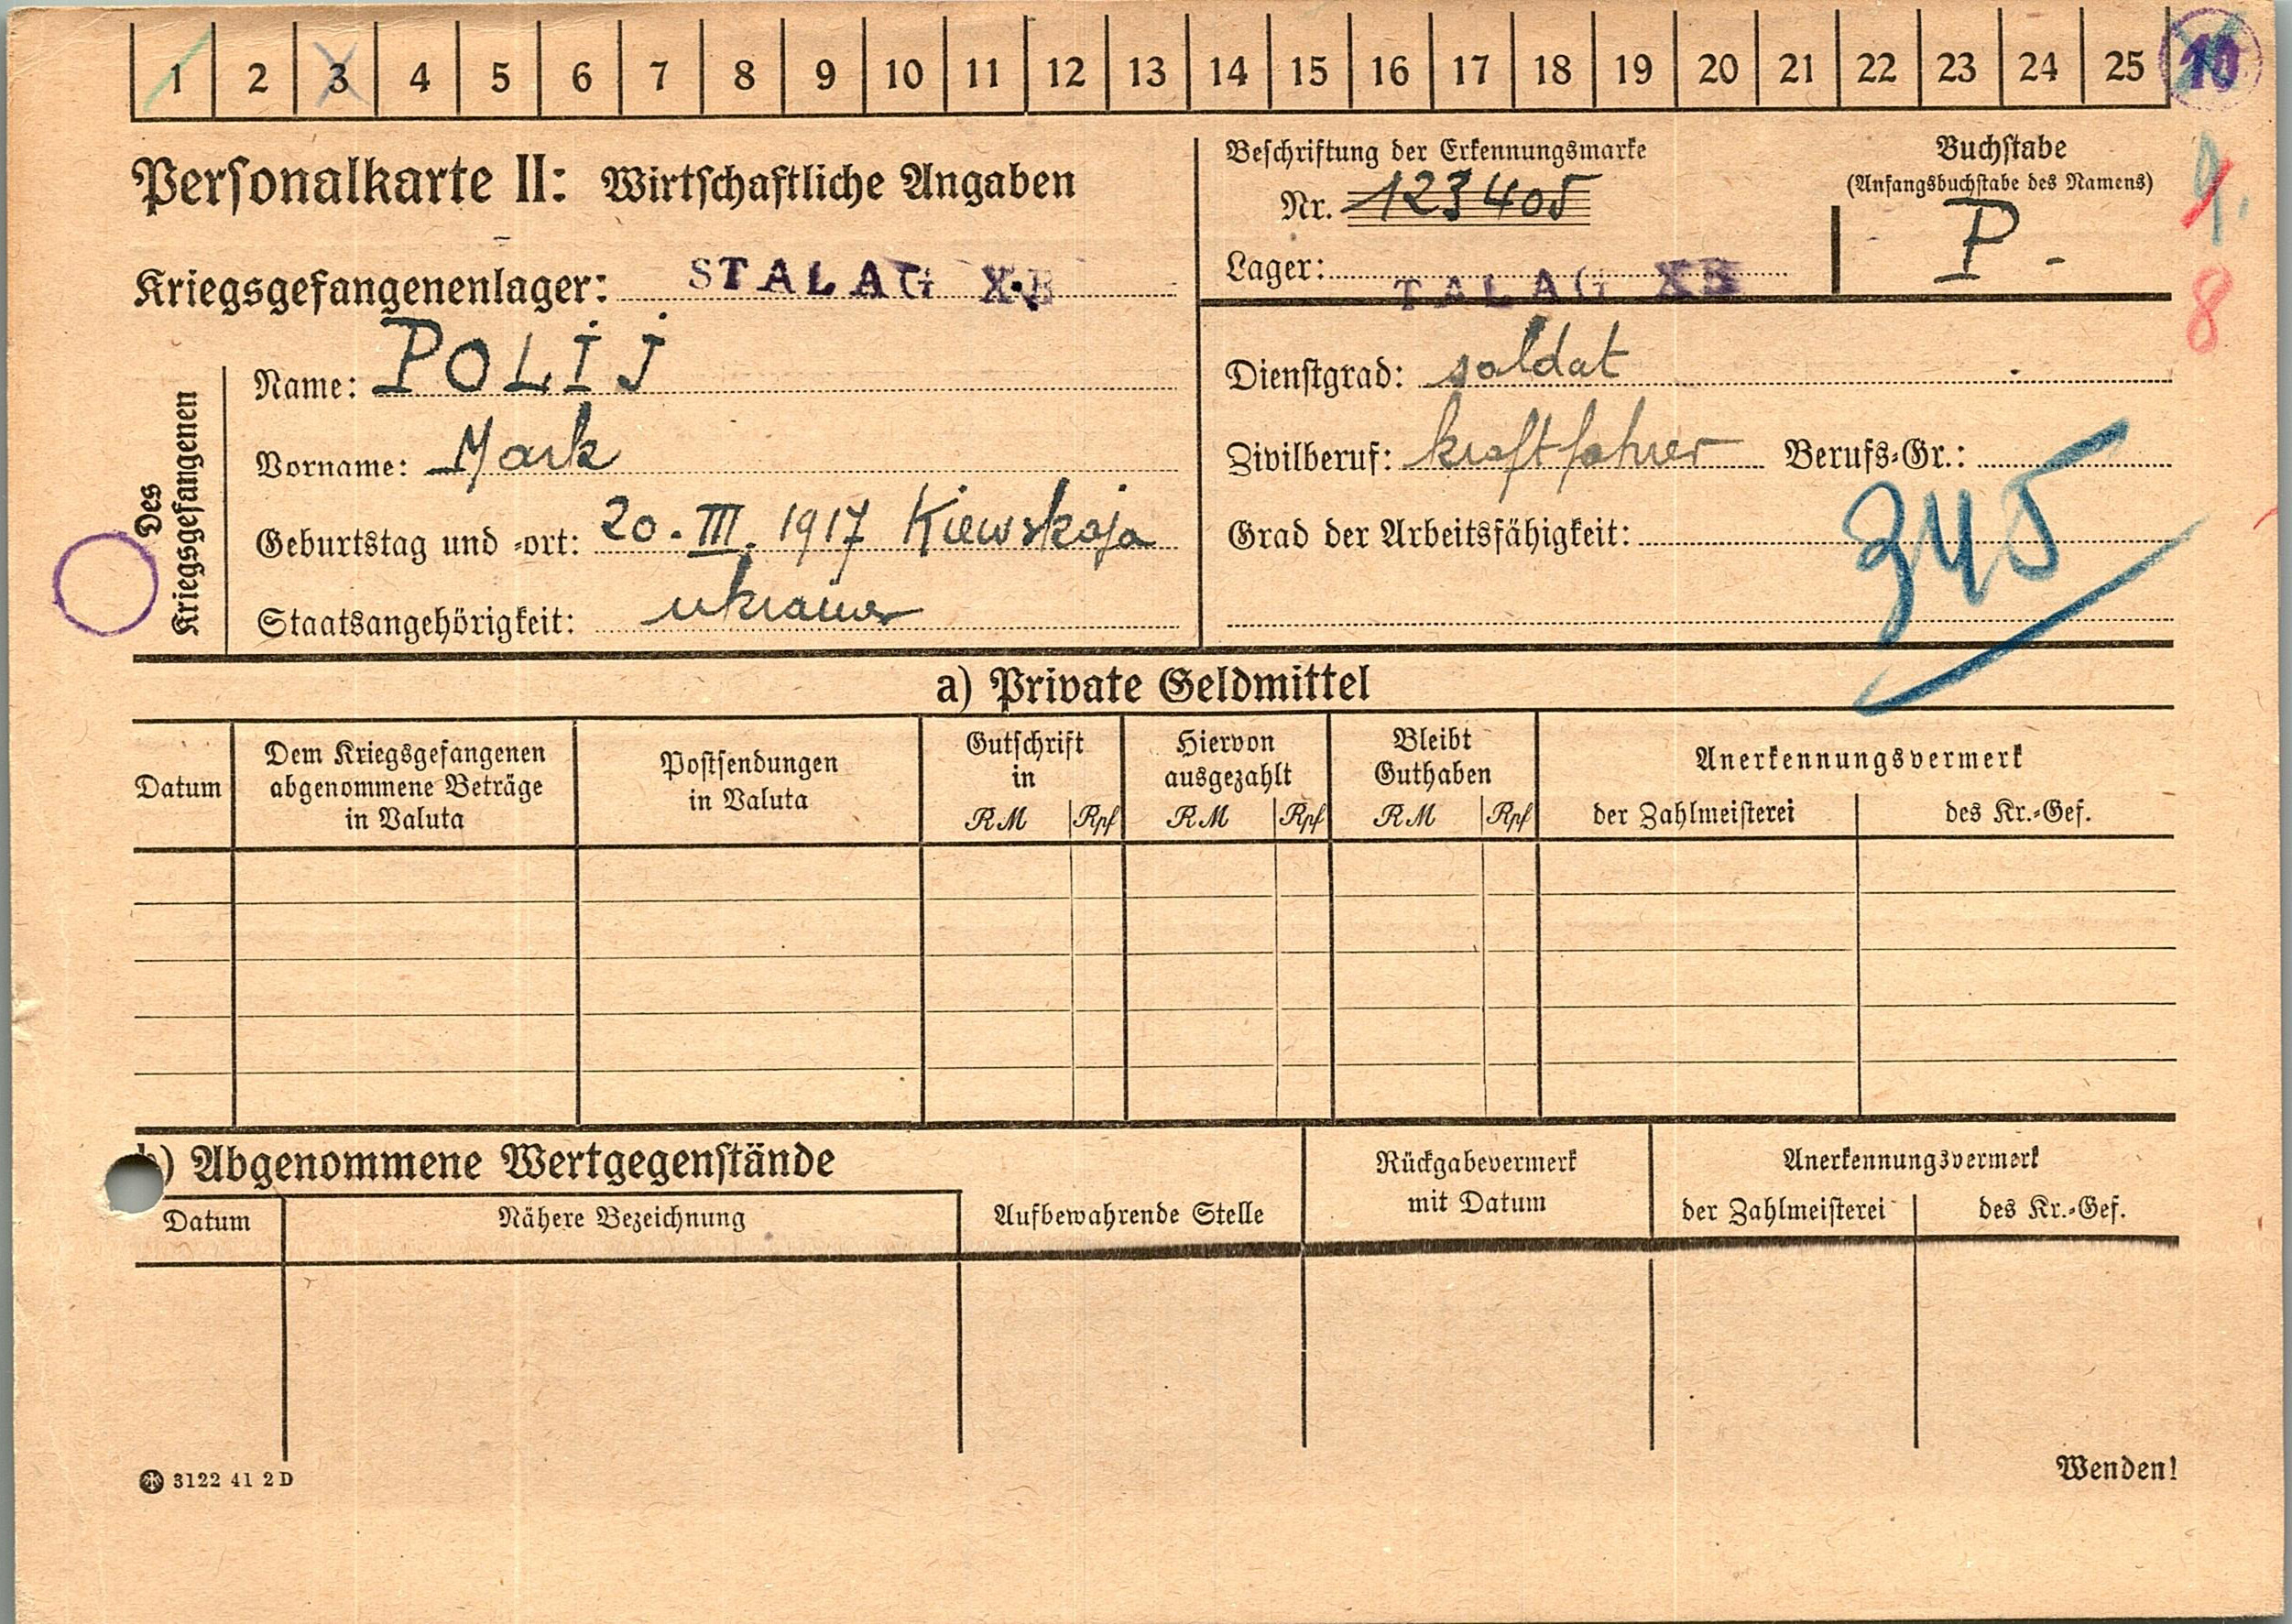 1 2 3 4 5 6 7 8 9 10 11 12 13 14 15 16 17 18 19 20 21 22 23 24 25 10
Personalkarte II: Wirtschaftliche Angaben
Beschriftung der Erkennungsmarke
Nr. 123405
Lager: TALAG XB
Buchstabe
(Anfangsbuchstabe des Namens)
P -
9.
8
Kriegsgefangenenlager: STALAG X.B
Des
Kriegsgefangenen
Name: POLIJ
Vorname: Mark
Geburtstag und -ort: 20. III. 1917 Kiewskaja
Staatsangehörigkeit: ukrainer
Dienstgrad: soldat
Zivilberuf: kraftfahrer Berufs-Gr.:
Grad der Arbeitsfähigkeit:
345
a) Private Geldmittel
Datum
Dem Kriegsgefangenen
abgenommene Beträge
in Valuta
Postsendungen
in Valuta
Gutschrift
in
RM Rpf
Hiervon
ausgezahlt
RM Rpf
Bleibt
Guthaben
RM Rpf
Anerkennungsvermerk
der Zahlmeisterei des Kr.-Gef.
b) Abgenommene Wertgegenstände
Datum
Nähere Bezeichnung
Aufbewahrende Stelle
Rückgabevermerk
mit Datum
Anerkennungsvermerk
der Zahlmeisterei des Kr.-Gef.
3122 41 2D
Wenden!